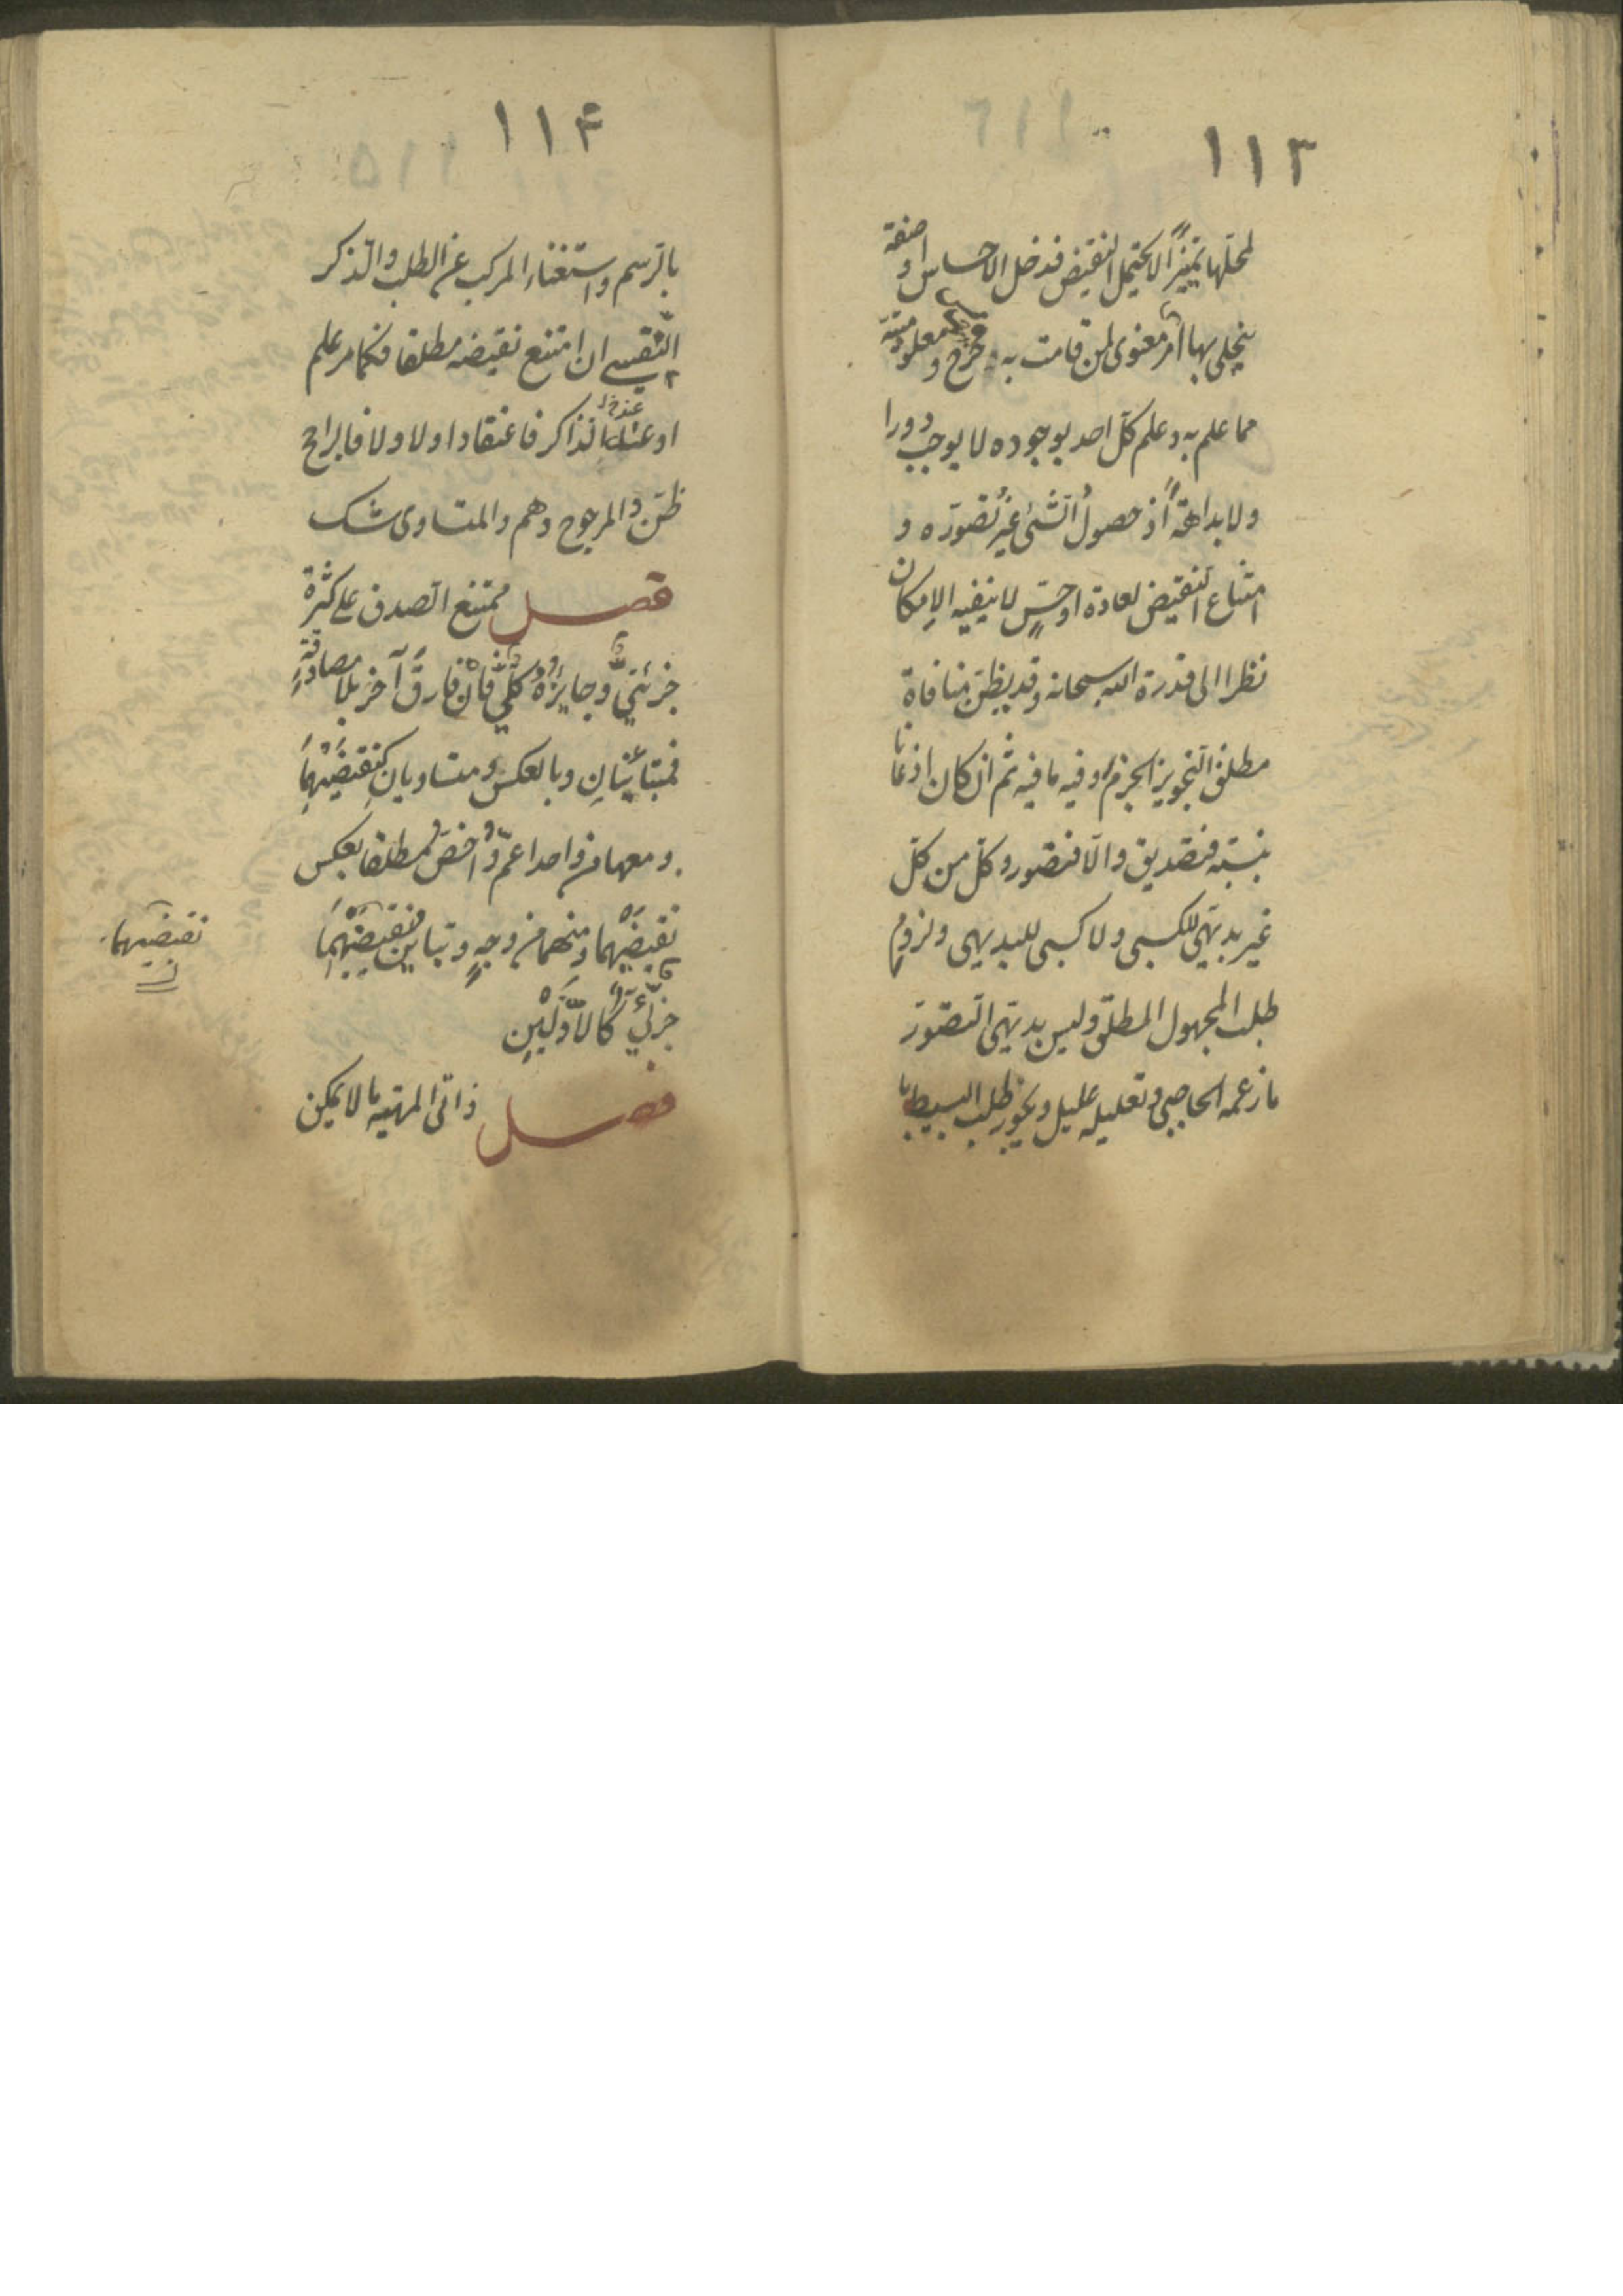 ١١٣
لمحلها تميزا لا يحتمل النقيض فدخل الاحساس او صفة
ينجلي بها امر معنوى لمن قامت به فخرج و معلومية
مما علم به و علم كل احد بوجوده لا يوجب دورا
ولا بداهة اذ حصول الشئ غير تصوره و
امتناع النقيض لعادة او حس لا ينفيه الامكان
نظرا الى قدرة الله سبحانه وقد يظن منافاة
مطلق التجويز الجزم و فيه ما فيه ثم ان كان اذعانا
بنسبته فتصديق والا فتصور و كل من كل
غير بديهى للكسبى ولا كسبى للبديهى ولزوم
طلب المجهول المطلق وليس بديهى التصور
ما زعمه الحاجبى و تعليله عليل و يجوز طلب البسيط
١١۴
بالرسم واستغناء المركب عن الطلب والذكر
النفسى ان امتنع نقيضه مطلقا فكما مر علم
او عند الذاكر فاعتقاد اولا ولا فالراجح
ظن والمرجوح وهم والمتساوى شك
فصل ممتنع الصدق على كثرة
جزئي و جايزه كلي فان فارق آخر بلا مصادقة
فمتباينان وبالعكس و متساويان كنقيضيهما
ومعها من واحد اعم واخص مطلقا بعكس
نقيضيهما ومنهما من وجه وتباين نقيضيهما
جزئي كالاولين
فصل ذاتى المهية ما لا يمكن
نقيضيهما